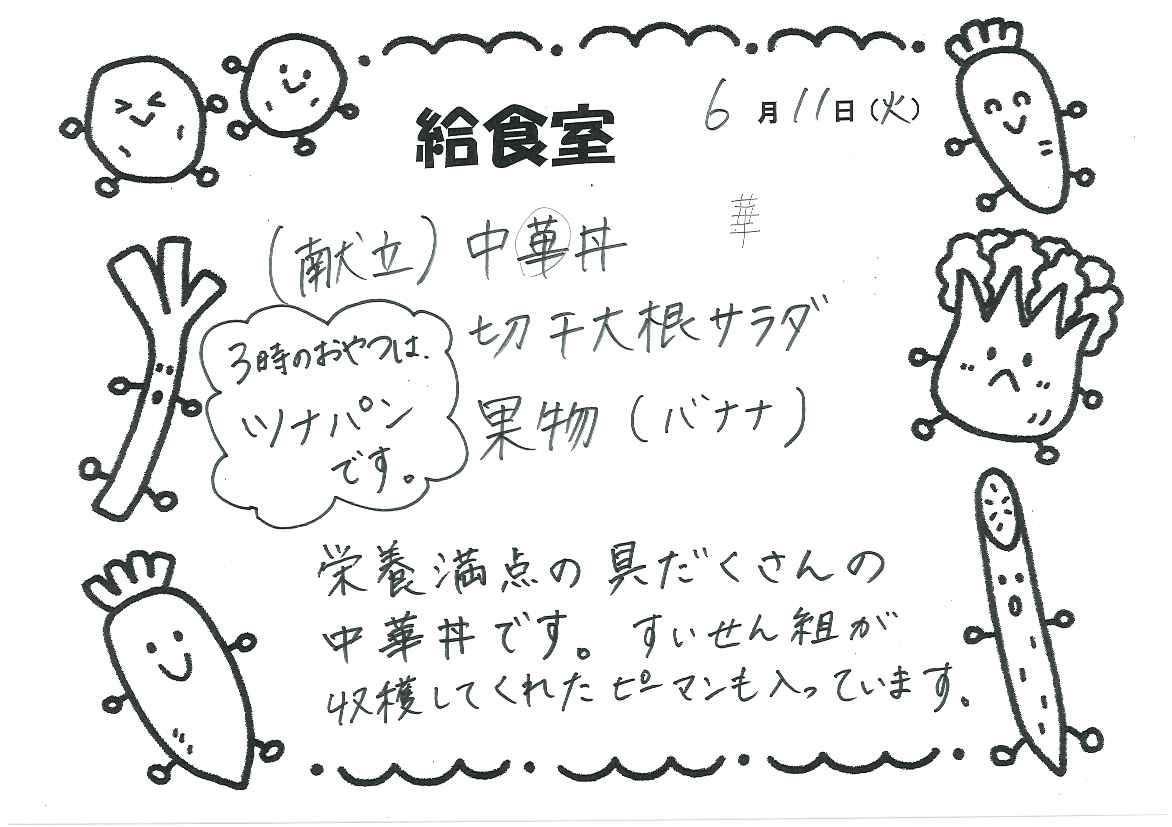 給食室
6月11日(火)
華
(献立)中華丼
切干大根サラダ
果物(バナナ)
3時のおやつは、
ツナパン
です。
栄養満点の具だくさんの
中華丼です。すいせん組が
収穫してくれたピーマンも入っています。